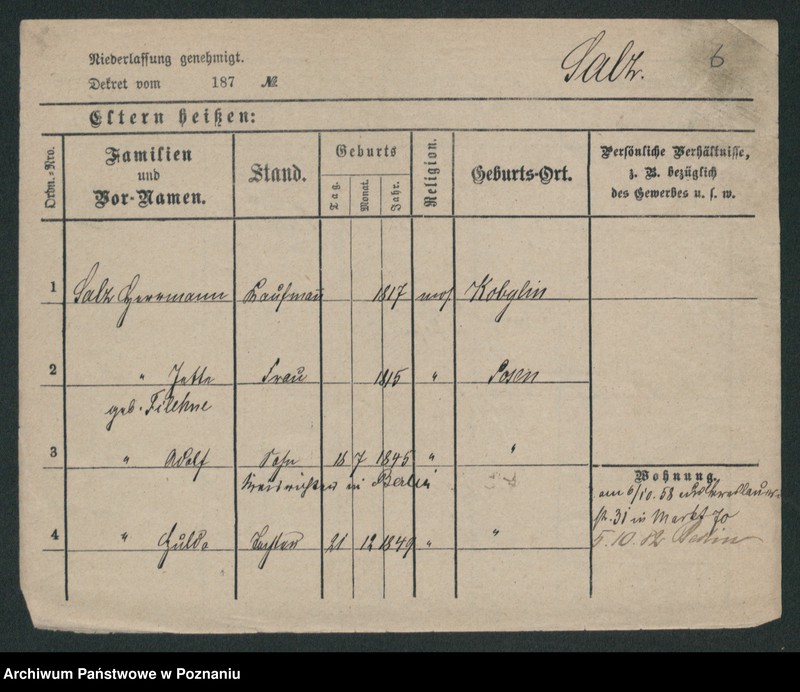 Niederlassung genehmigt.
Salz. 6
Dekret vom 187 №
Eltern heißen:
Ordn.=Nro.
Familien
und
Vor-Namen.
Stand.
Geburts
Tag.
Monat.
Jahr.
Religion.
Geburts-Ort.
Persönliche Verhältnisse,
z. B. bezüglich
des Gewerbes u. s. w.
1 Salz Herrmann Kaufmann 1817 mos Kobylin
2 " Jette Frau 1815 " Posen
geb. Filehne
3 " Adolf Sohn 18 7 1845 " "
in Berlin
Wohnung.
am 6/10. 58
str. 31 in Markt 70
4 " Hulda Tochter 21 12 1849 " "
5.10.82 Berlin
Archiwum Państwowe w Poznaniu